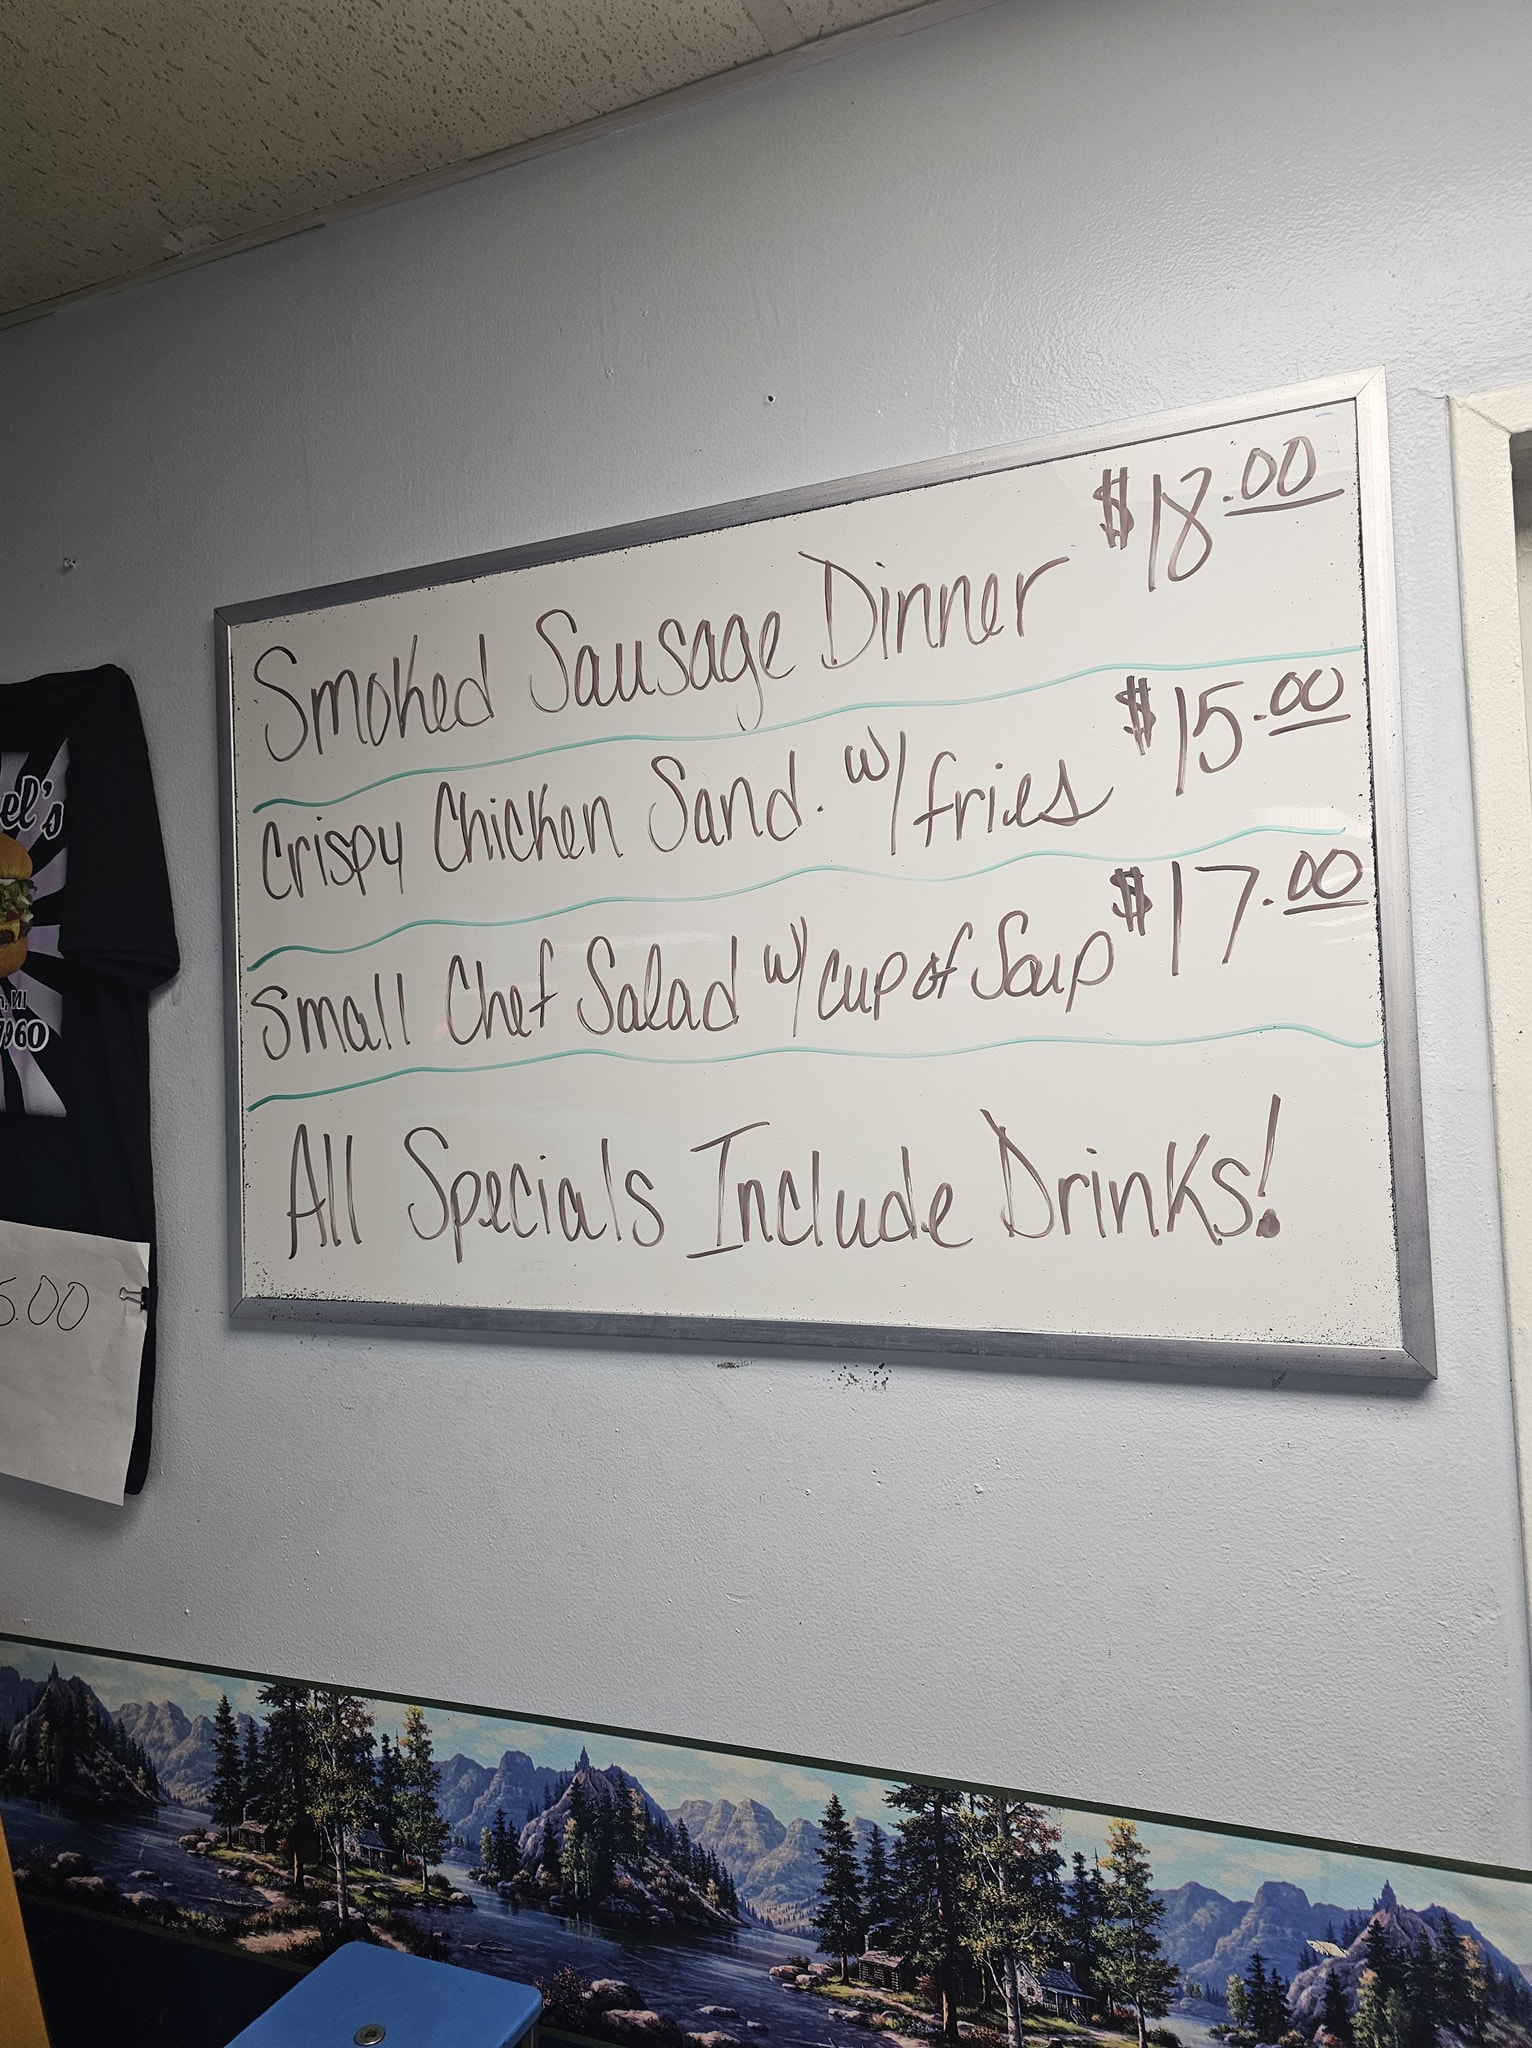 Smoked Sausage Dinner $18.00
Crispy Chicken Sand. w/ fries $15.00
Small Chef Salad w/ cup of Soup $17.00
All Specials Include Drinks!
el's
, MI
7960
5.00